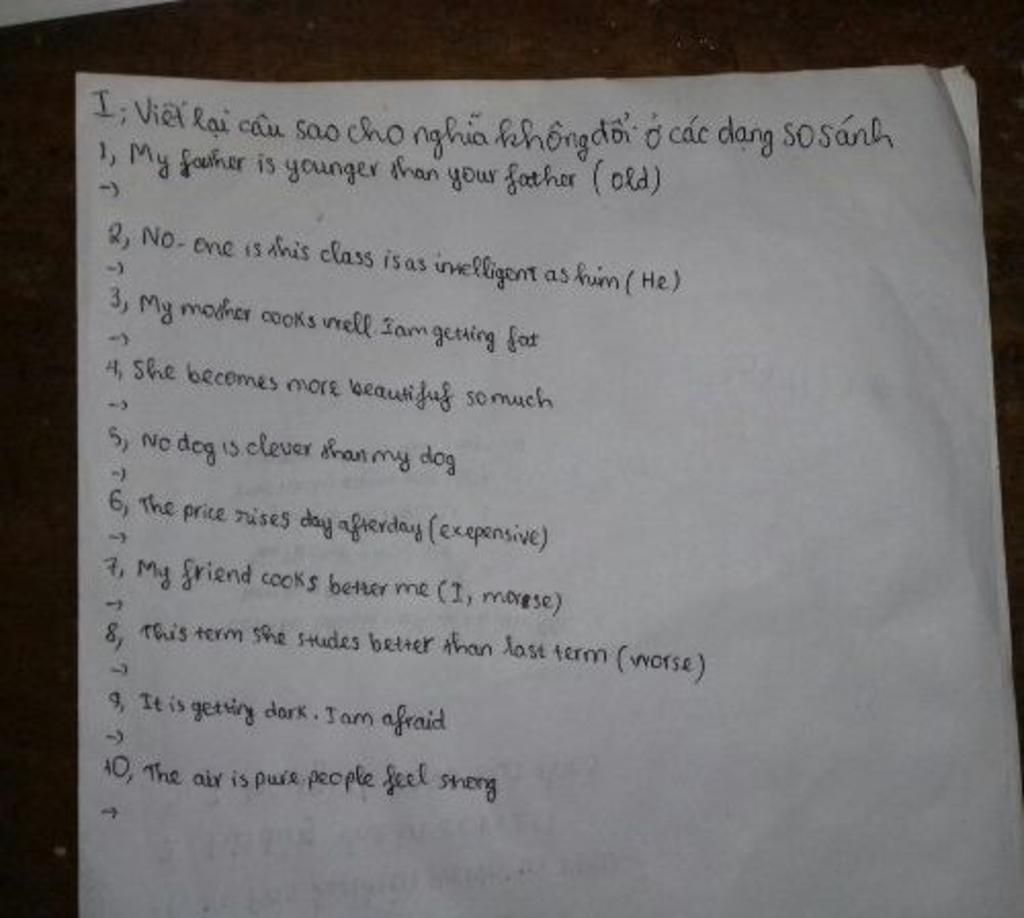 I; Viết lại câu sao cho nghĩa không đổi ở các dạng so sánh
1, My father is younger than your father (old)
->
2, No-one is this class is as intelligent as him (He)
->
3, My mother cooks well I am getting fat
->
4, She becomes more beautiful so much
->
5, No dog is clever than my dog
->
6, The price rises day after day (exepensive)
->
7, My friend cooks better me (I,
->
8, This term she studes better than last term (worse)
->
9, It is getting dark. I am afraid
->
10, The air is pure people feel
->